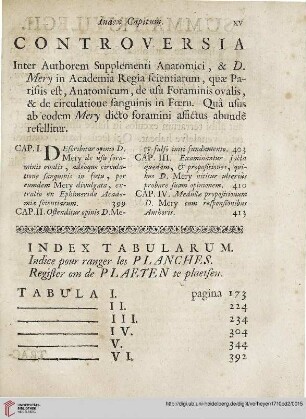 Index Capitum. XV
CONTROVERSIA
Inter Authorem Supplementi Anatomici, & D.
Mery in Academia Regia scientiarum, quæ Pa-
risiis est, Anatomicum, de usu Foraminis ovalis,
& de circulatione sanguinis in Fœtu. Quâ usus
ab eodem Mery dicto foramini affictus abundè
refellitur.
CAP. I. Describitur opinio D.
Mery de usu fora-
minis ovalis, adeoque circula-
tione sanguinis in fœtu, per
eumdem Mery divulgata, ex-
tracta ex Ephimeride Acade-
miæ scientiarum. 399
CAP. II. Ostenditur opinio D. Me-
ry falso initi fundamento. 403
CAP. III. Examinatur facta
quædam, & propositiones, qui-
bus D. Mery nititur ulterius
probare suam opinionem. 410
CAP. IV. Medulæ propositionum
D. Mery cum responsionibus
Authoris. 413
INDEX TABULARUM.
Indice pour ranger les PLANCHES.
Register om de PLAETEN te plaetsen.
TABULA I. pagina 173
II. 224
III. 234
IV. 304
V. 344
VI. 392
UNIVERSITÄTS-
BIBLIOTHEK
HEIDELBERG
http://digi.ub.uni-heidelberg.de/diglit/verheyen1710bd2/0015